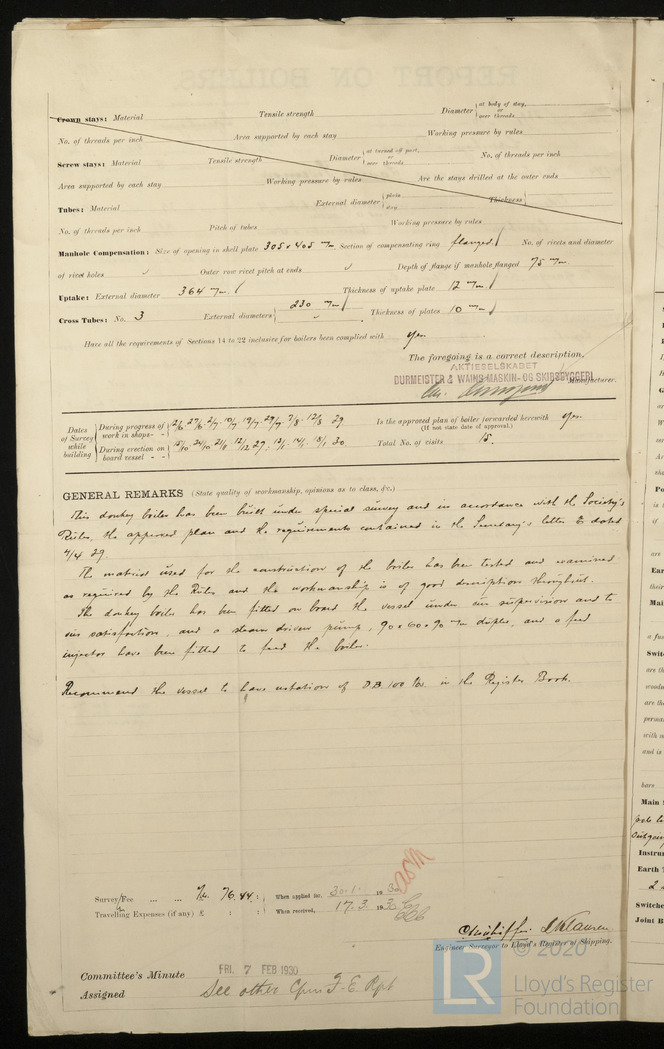 REPORT ON BOILERS
Crown stays: Material Tensile strength Diameter { at body of stay, or over threads
No. of threads per inch Area supported by each stay Working pressure by rules
Screw stays: Material Tensile strength Diameter { at turned off part, or over threads No. of threads per inch
Area supported by each stay Working pressure by rules Are the stays drilled at the outer ends
Tubes: Material External diameter { plain stay Thickness {
No. of threads per inch Pitch of tubes Working pressure by rules
Manhole Compensation: Size of opening in shell plate 305 x 405 m/m Section of compensating ring flanged No. of rivets and diameter
of rivet holes ✓ Outer row rivet pitch at ends ✓ Depth of flange if manhole flanged 75 m/m
Uptake: External diameter 364 m/m Thickness of uptake plate 12 m/m
Cross Tubes: No. 3 External diameters { 230 m/m Thickness of plates 10 m/m
Have all the requirements of Sections 14 to 22 inclusive for boilers been complied with yes
The foregoing is a correct description,
AKTIESELSKABET
BURMEISTER & WAINS MASKIN- OG SKIBSBYGGERI Manufacturer.
Dates of Survey while building
During progress of work in shops - - 12/6 27/6 2/7 10/7 19/7 29/7 7/8 12/8 29
Is the approved plan of boiler forwarded herewith yes.
(If not state date of approval.)
During erection on board vessel - - 15/10 24/10 21/11 12/12 29. 13/1 14/1 18/1 30
Total No. of visits 15.
GENERAL REMARKS (State quality of workmanship, opinions as to class, &c.)
This donkey boiler has been built under special survey and in accordance with the Society's
Rules, the approved plan and the requirements contained in the Secretary's letter E dated
4/4 29
The material used for the construction of the boiler has been tested and examined
as required by the Rules and the workmanship is of good description throughout.
The donkey boiler has been fitted on board the vessel under our supervision and to
our satisfaction, and a steam driven pump, 90 x 60 x 90 m/m duplex, and a feed
injector have been fitted to feed the boiler.
Recommend the vessel to have notation of DB 100 lbs in the Register Book.
Survey Fee ... ... 76.44 : } When applied for, 30.1. 1930
Travelling Expenses (if any) £ : : } When received, 17.3. 1930
Engineer Surveyor to Lloyd's Register of Shipping.
Committee's Minute FRI. 7 FEB 1930
Assigned See other Cpn F.E. Rpt
© 2020
LR
Lloyd's Register
Foundation